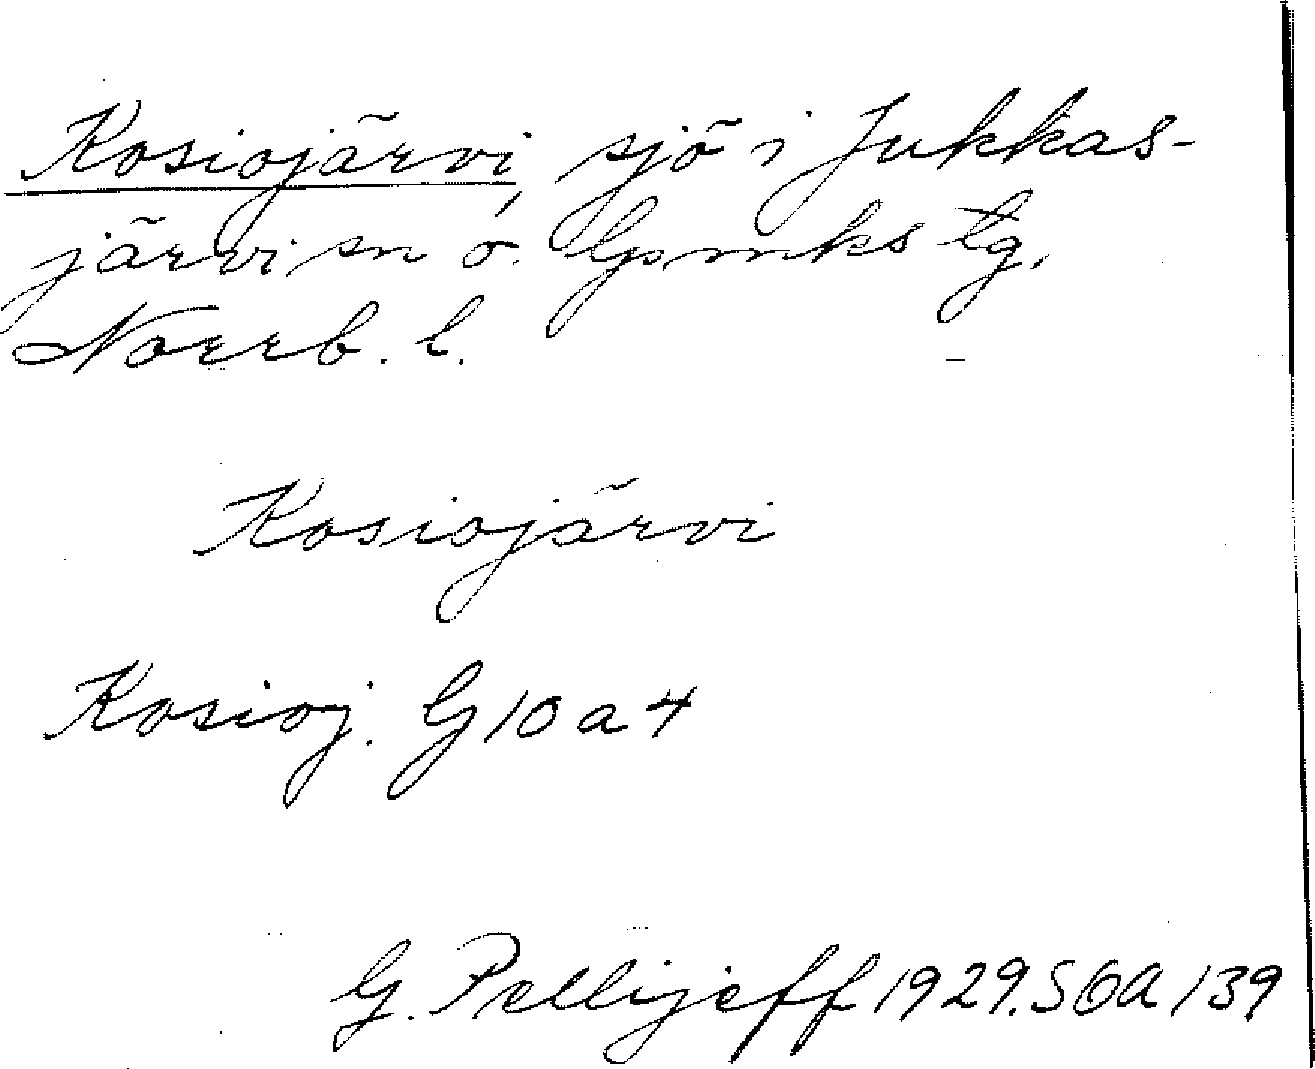 Kosiojärvi, sjö i Jukkas-
järvi sn o. lpmks tg,
Norrb. l.
Kosiojärvi
Kosioj. G 10 a 4
G. Pellijeff 1929. SOA 139